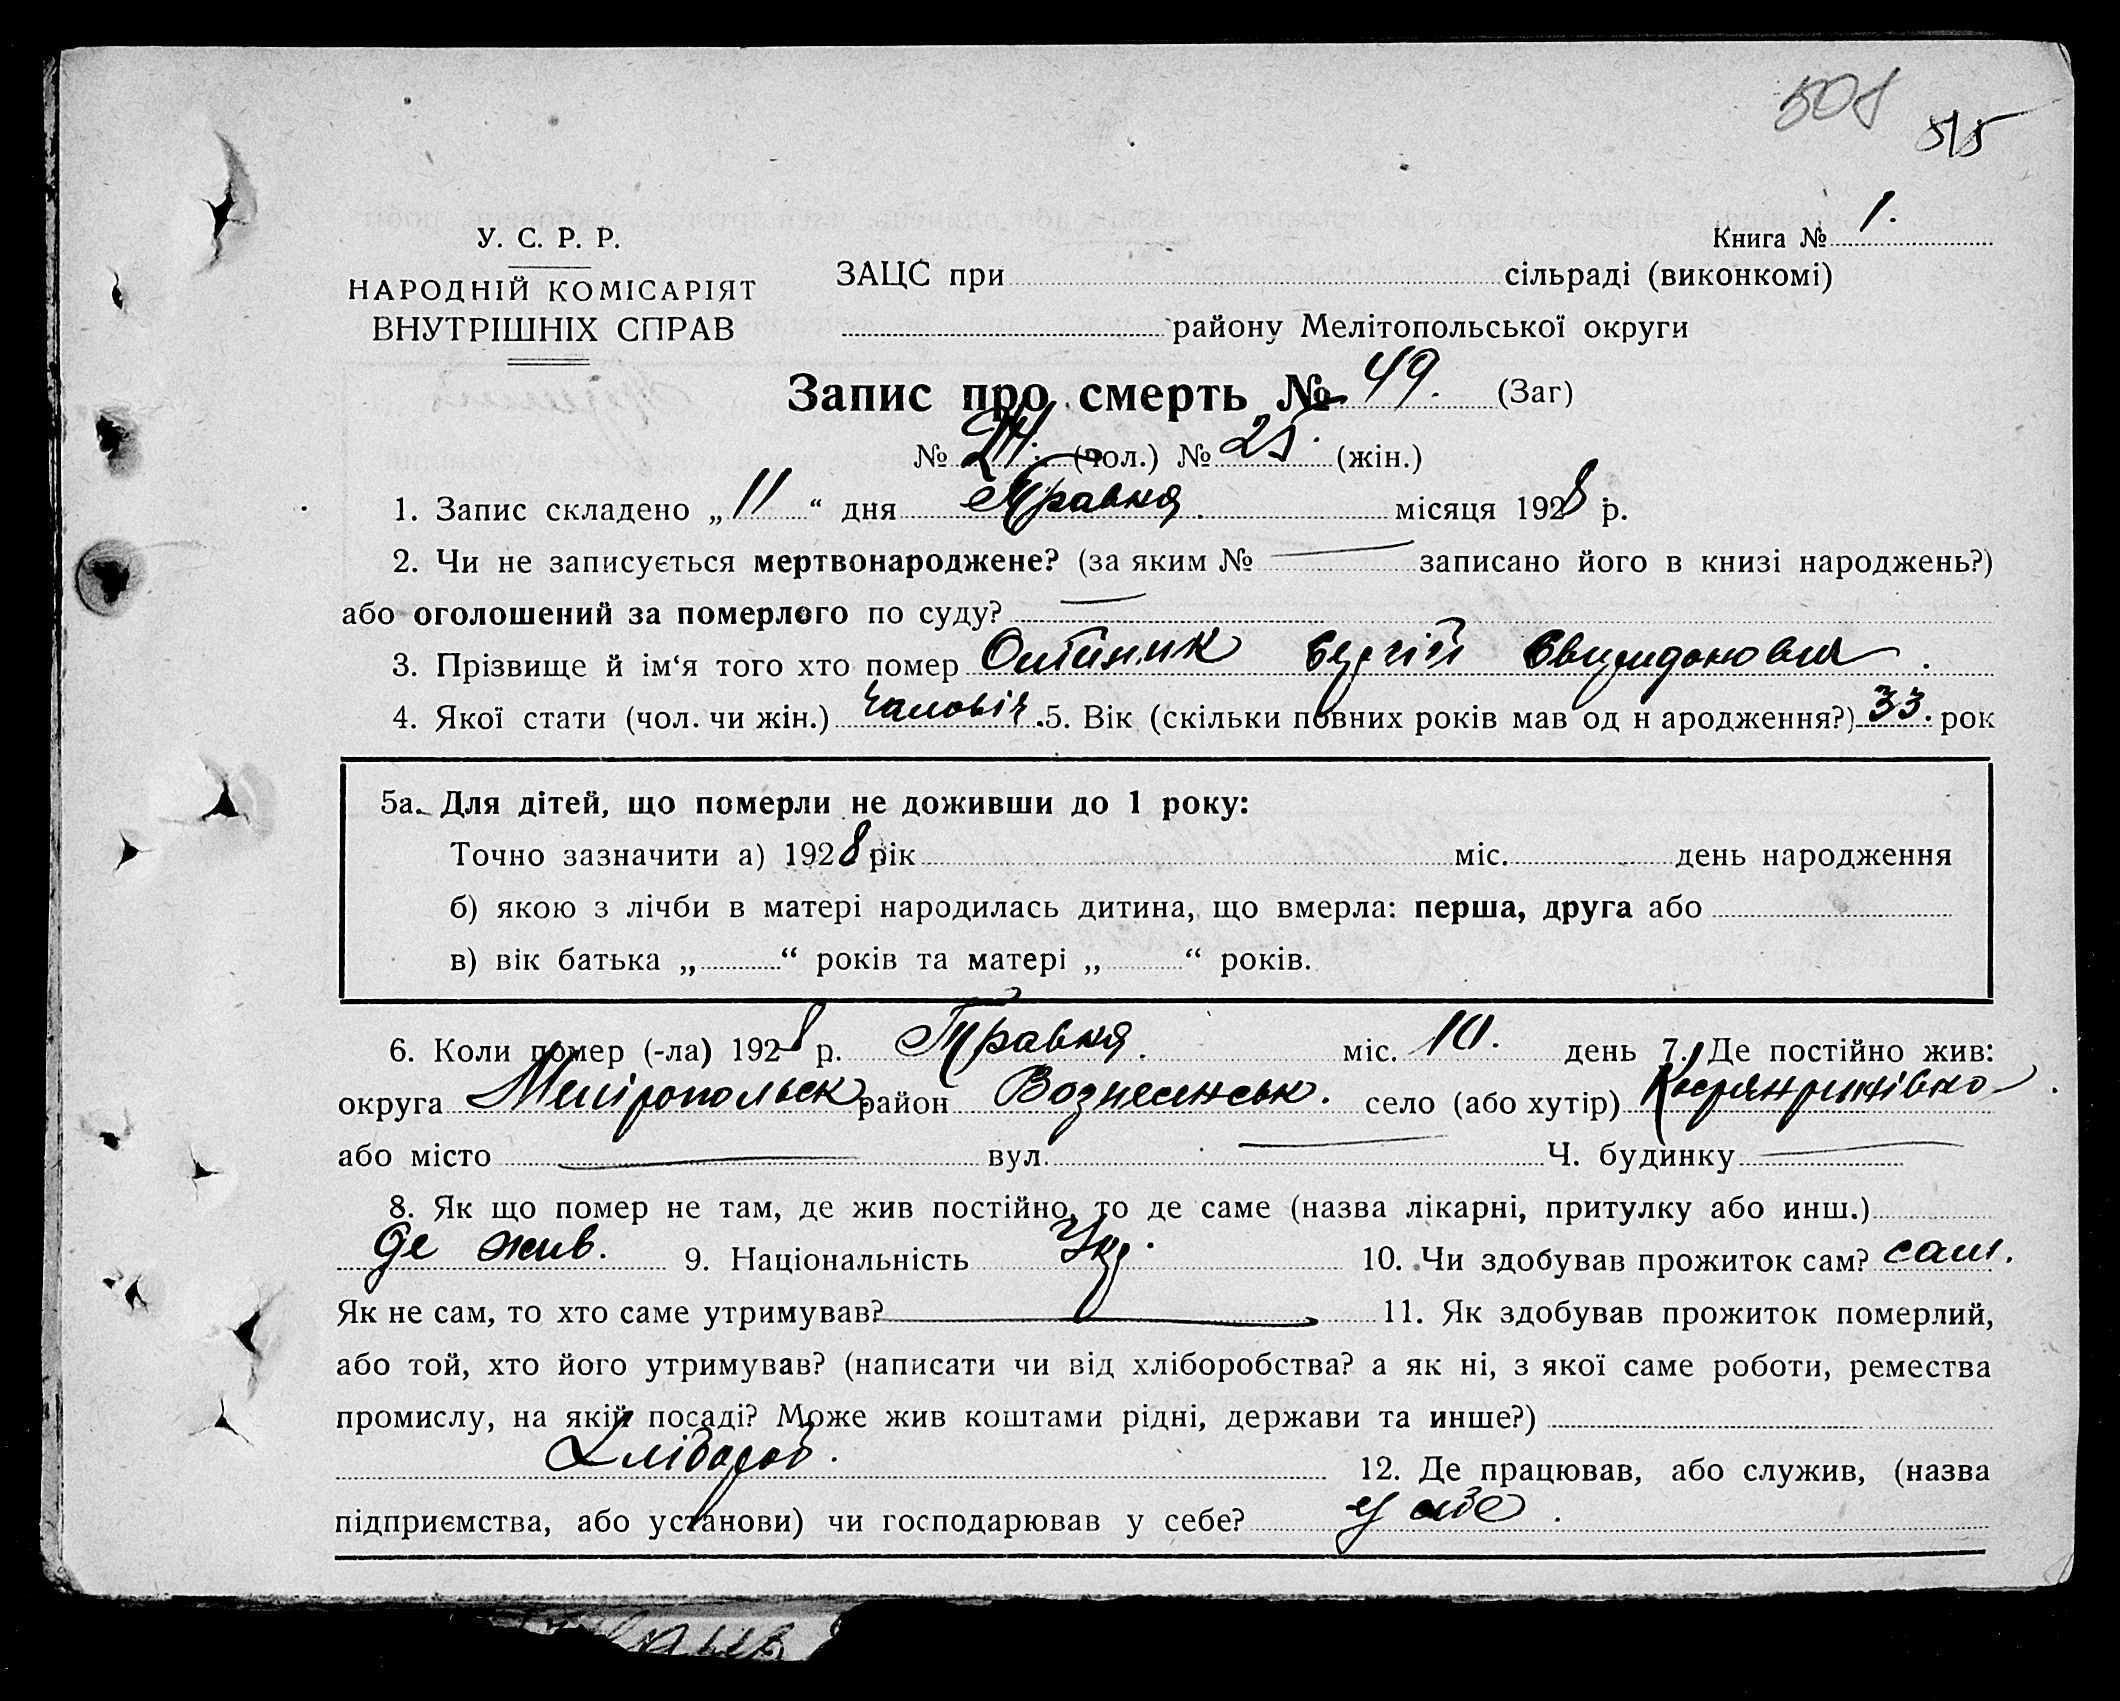 508
515
У. С. Р. Р.
НАРОДНІЙ КОМІСАРІЯТ
ВНУТРІШНІХ СПРАВ
Книга № 1.
ЗАЦС при сільраді (виконкомі)
району Мелітопольської округи
Запис про смерть № 49. (Заг)
№ 24. (чол.) № 25. (жін.)
1. Запис складено „ 11 “ дня Травня. місяця 1928 р.
2. Чи не записується мертвонароджене? (за яким № — записано його в книзі народжень?)
або оголошений за померлого по суду? —
3. Прізвище й ім‘я того хто помер Сергій
4. Якої стати (чол. чи жін.) Чаловіч. 5. Вік (скільки повних років мав од н ародження?) 33. рок
5а. Для дітей, що померли не доживши до 1 року:
Точно зазначити а) 1928 рік міс. день народження
б) якою з лічби в матері народилась дитина, що вмерла: перша, друга або
в) вік батька „ “ років та матері „ “ років.
6. Коли помер (-ла) 1928 р. Травня. міс. 10. день 7. Де постійно жив:
округа Мелітопольск. район Вознесенськ. село (або хутір)
або місто — вул. — Ч. будинку —
8. Як що помер не там, де жив постійно, то де саме (назва лікарні, притулку або инш.)
де жив. 9. Національність Укр. 10. Чи здобував прожиток сам? сам.
Як не сам, то хто саме утримував? — 11. Як здобував прожиток померлий,
або той, хто його утримував? (написати чи від хліборобства? а як ні, з якої саме роботи, ремества
промислу, на якій посаді? Може жив коштами рідні, держави та инше?)
Хлібороб. 12. Де працював, або служив, (назва
підприємства, або установи) чи господарював у себе? у себе.